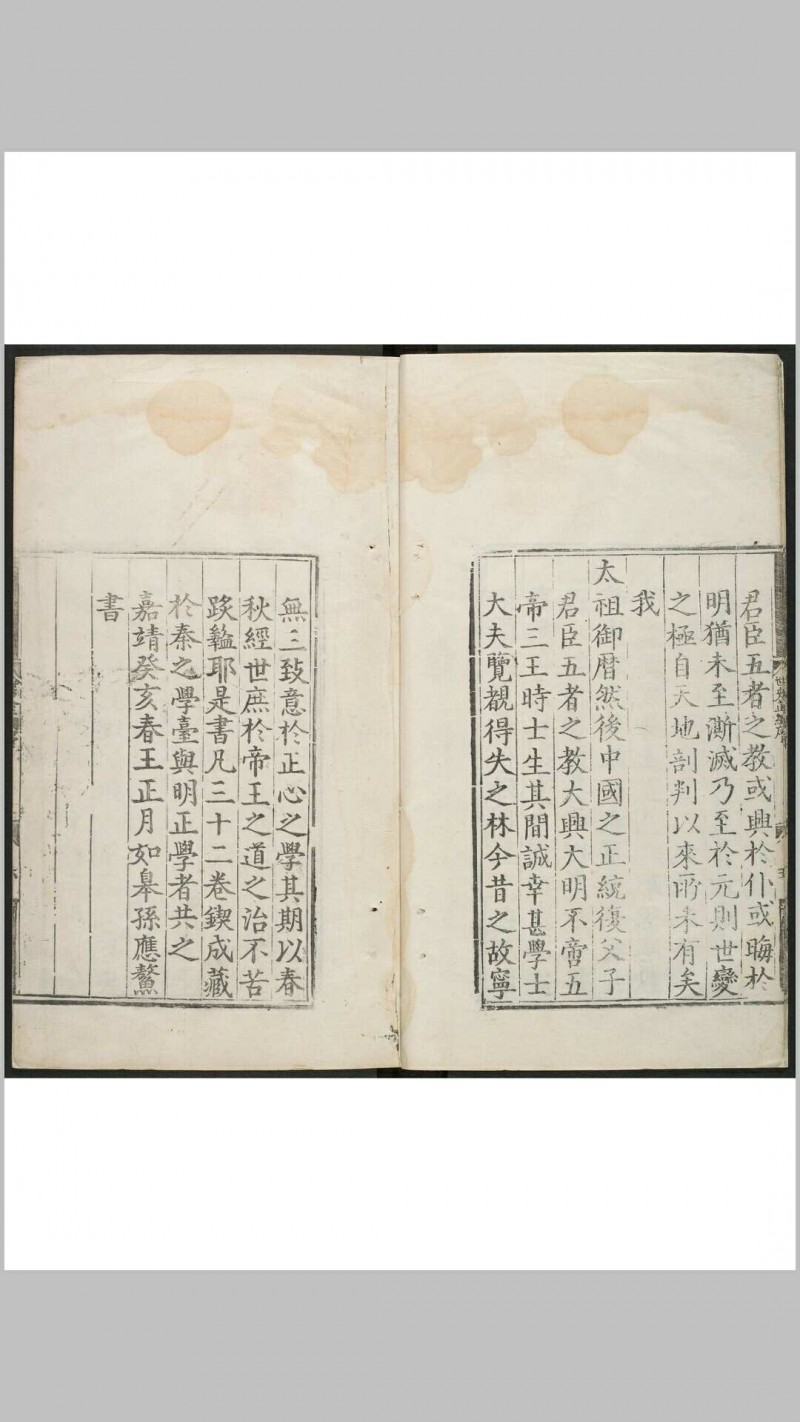 君臣五者之教或興於仆或晦於
明猶未至澌滅乃至於元則世變
之極自天地剖判以來所未有矣
我
太祖御曆然後中國之正統復父子
君臣五者之教大興大明不啻五
帝三王時士生其間誠幸甚學士
大夫覽覩得失之林今昔之故寧
無三致意於正心之學其期以春
秋經世庶於帝王之道之治不苦
跋盭耶是書凡三十二卷鍥成藏
於秦之學臺與明正學者共之
嘉靖癸亥春王正月如皋孫應鰲
書